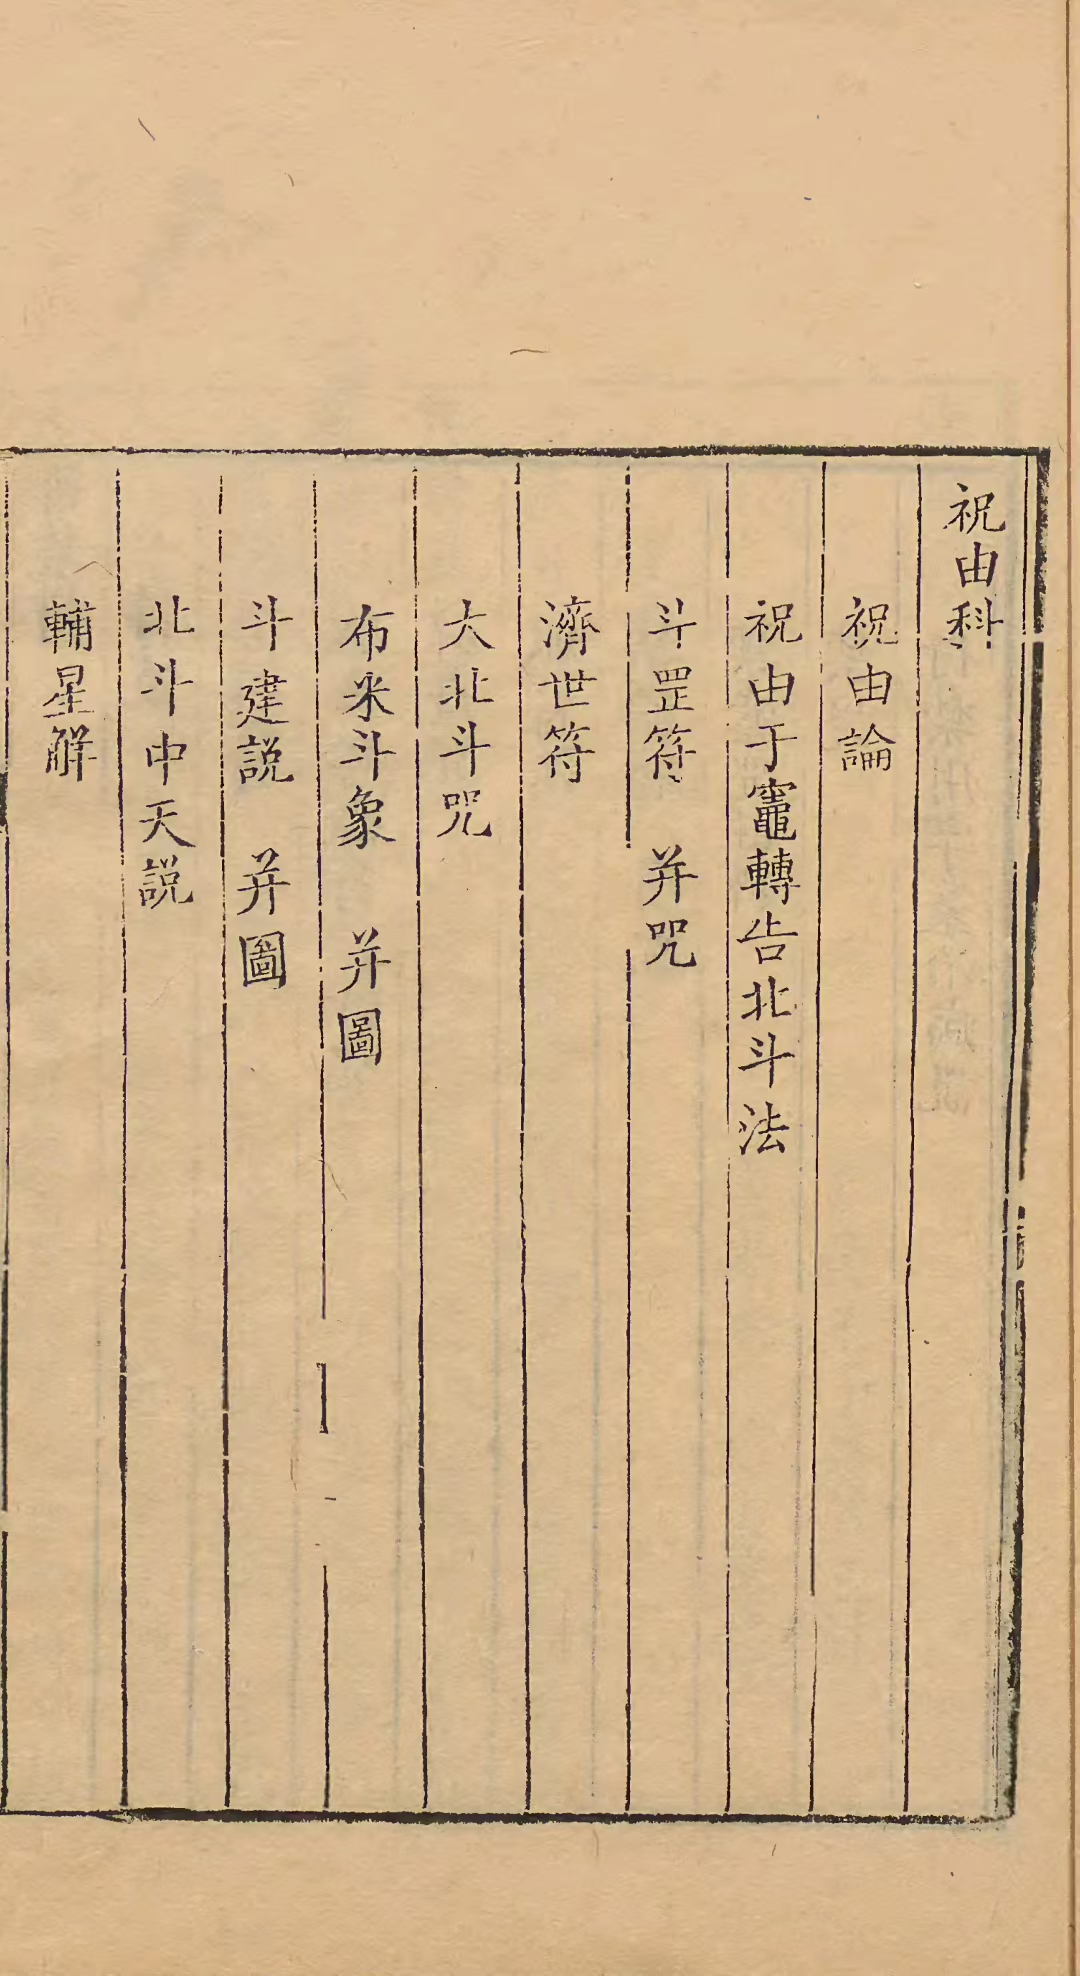 祝由科
祝由論
祝由于竈轉告北斗法
斗罡符 并咒
濟世符
大北斗咒
布米斗象 并圖
斗建説 并圖
北斗中天説
輔星解